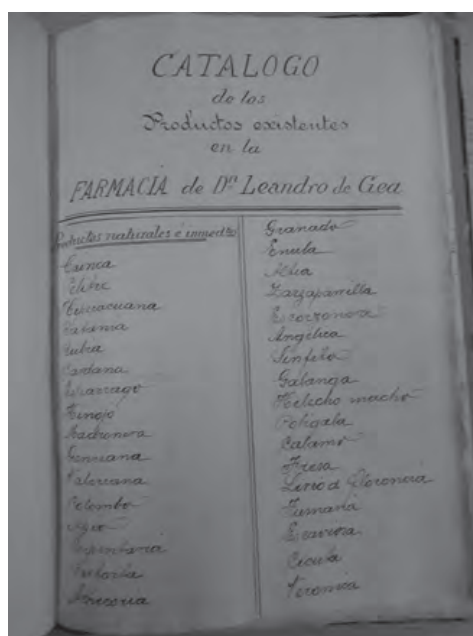 CATALOGO
de los
Productos existentes
en la
FARMACIA de Dn Leandro de Gea
Productos naturales é inmedtos
Grinca
Pelitre
Ratania
Rubia
Bardana
Esparrago
Hinojo
Genciana
Valeriana
Colombo
Apio
Serpentaria
Bistorta
Achicoria
Granado
Enula
Altea
Zarzaparrilla
Escorzonera
Angélica
Sinfito
Galanga
Helecho macho
Poligala
Calamo
Fresa
Lirio d Florencia
Fumaria
Cicuta
Veronica